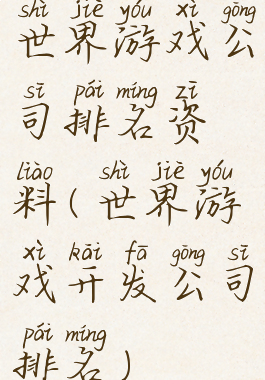 shì jiè yóu xì gōng
世界游戏公
sī pái míng zī
司排名资
liào shì jiè yóu
料(世界游
xì kāi fā gōng sī
戏开发公司
pái míng
排名)